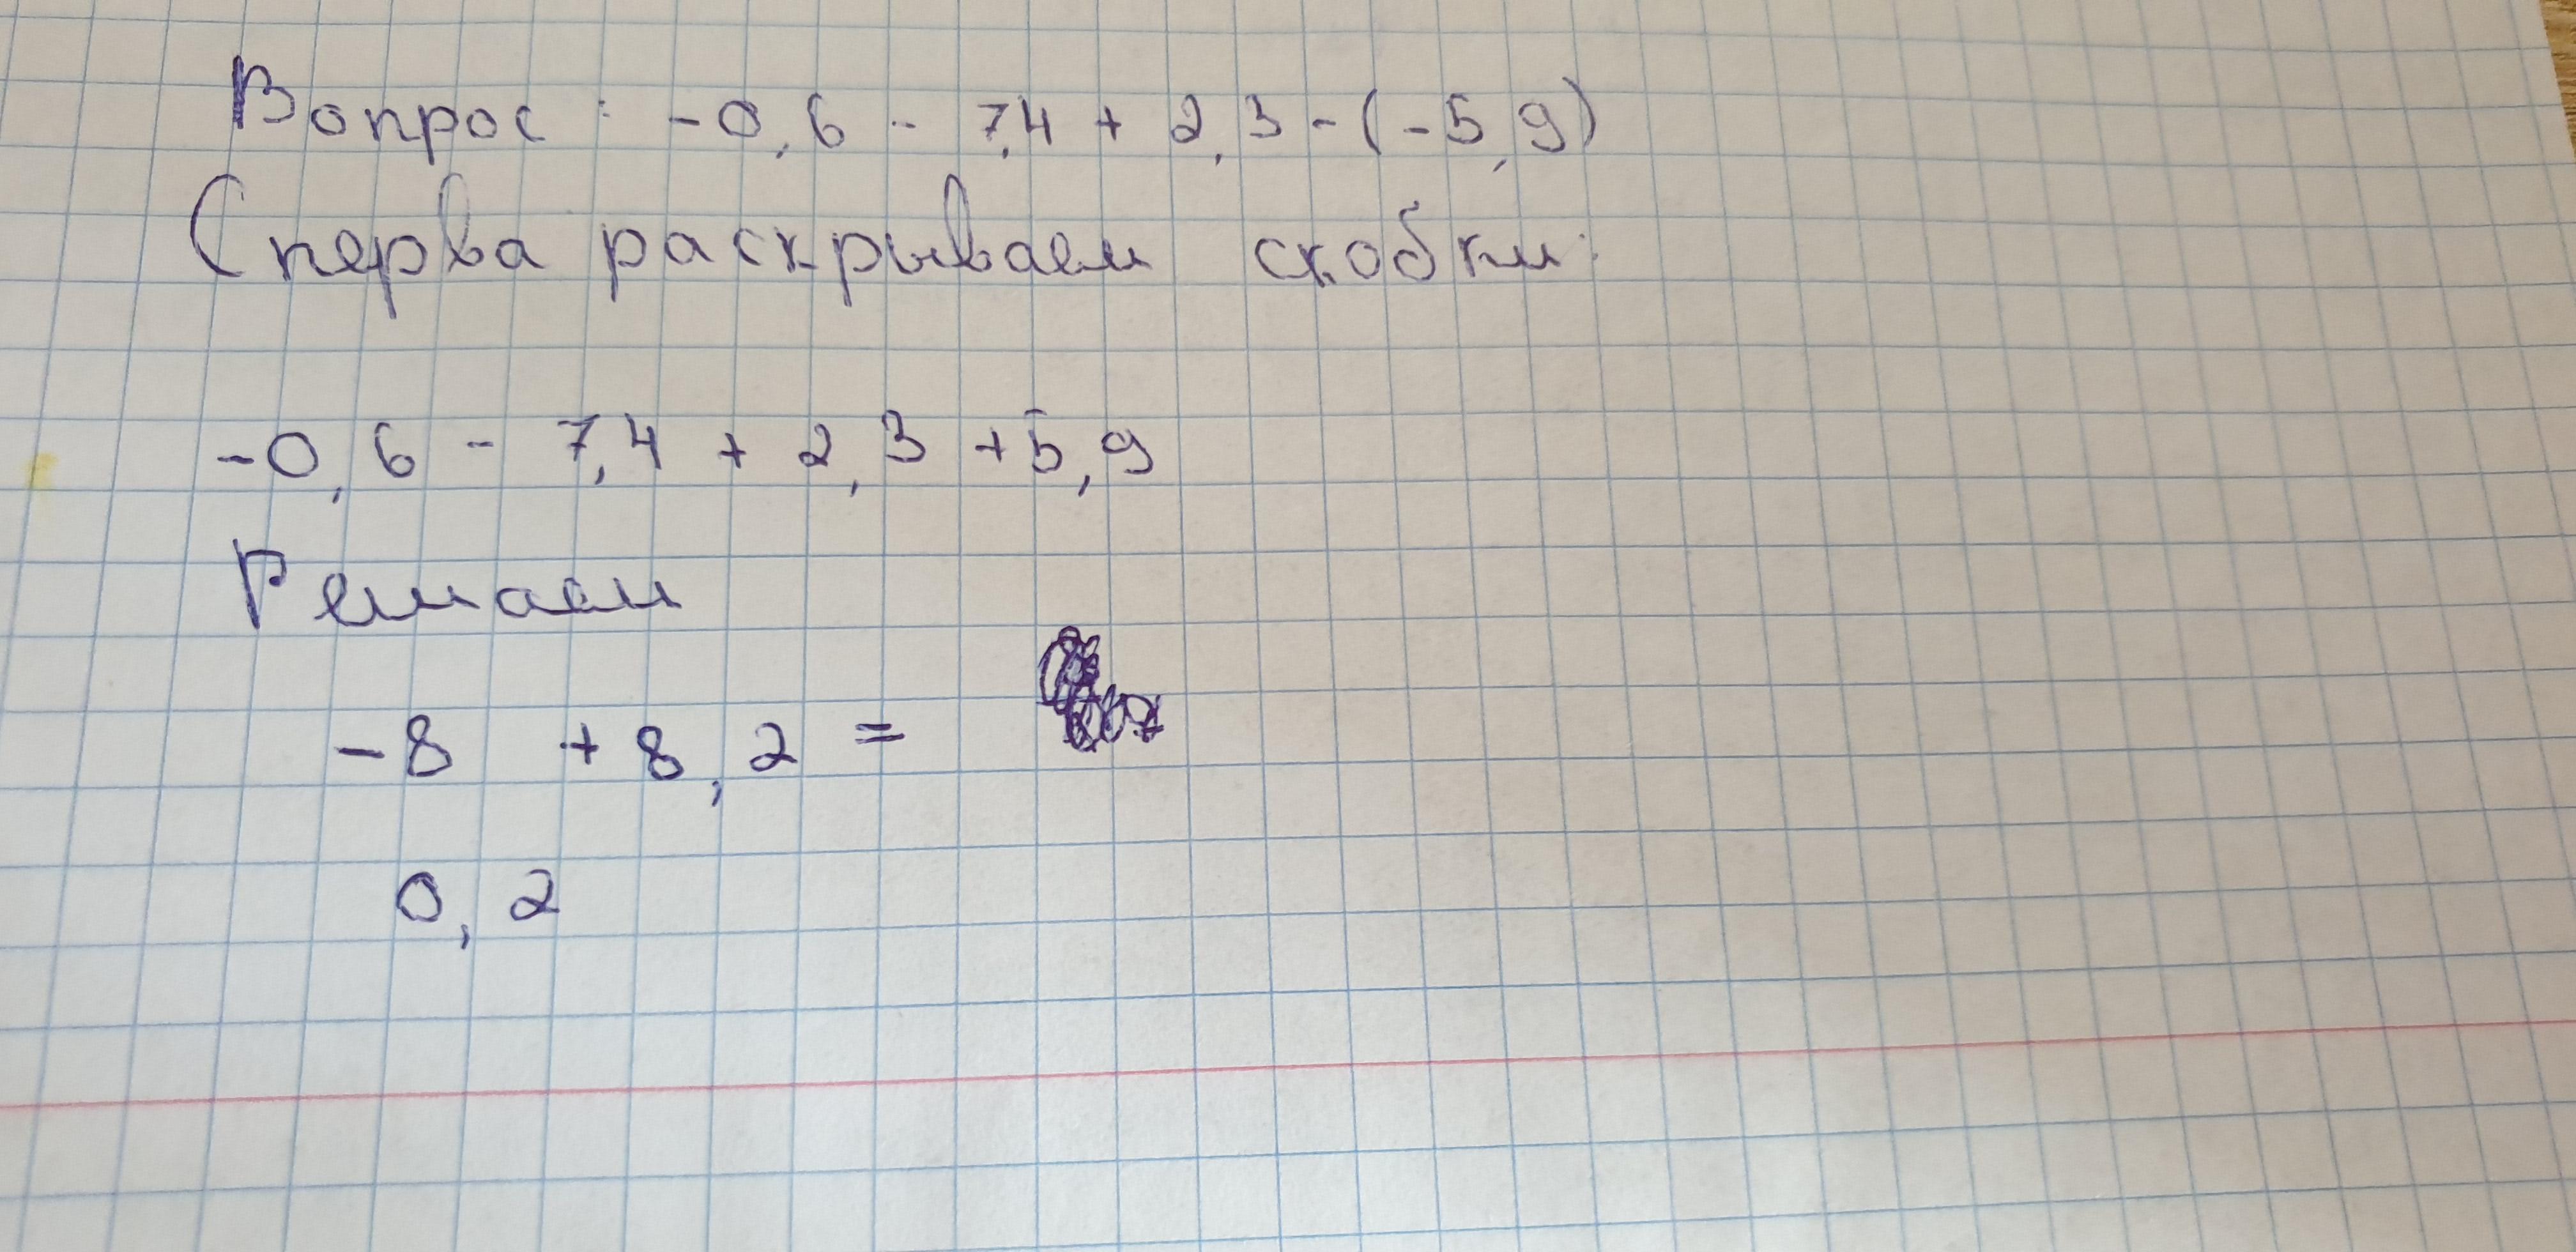 Вопрос: -0,6 - 7,4 + 2,3 - (-5,9)
Сперва раскрываем скобки:
-0,6 - 7,4 + 2,3 + 5,9
Решаем
-8 + 8,2 =
0,2